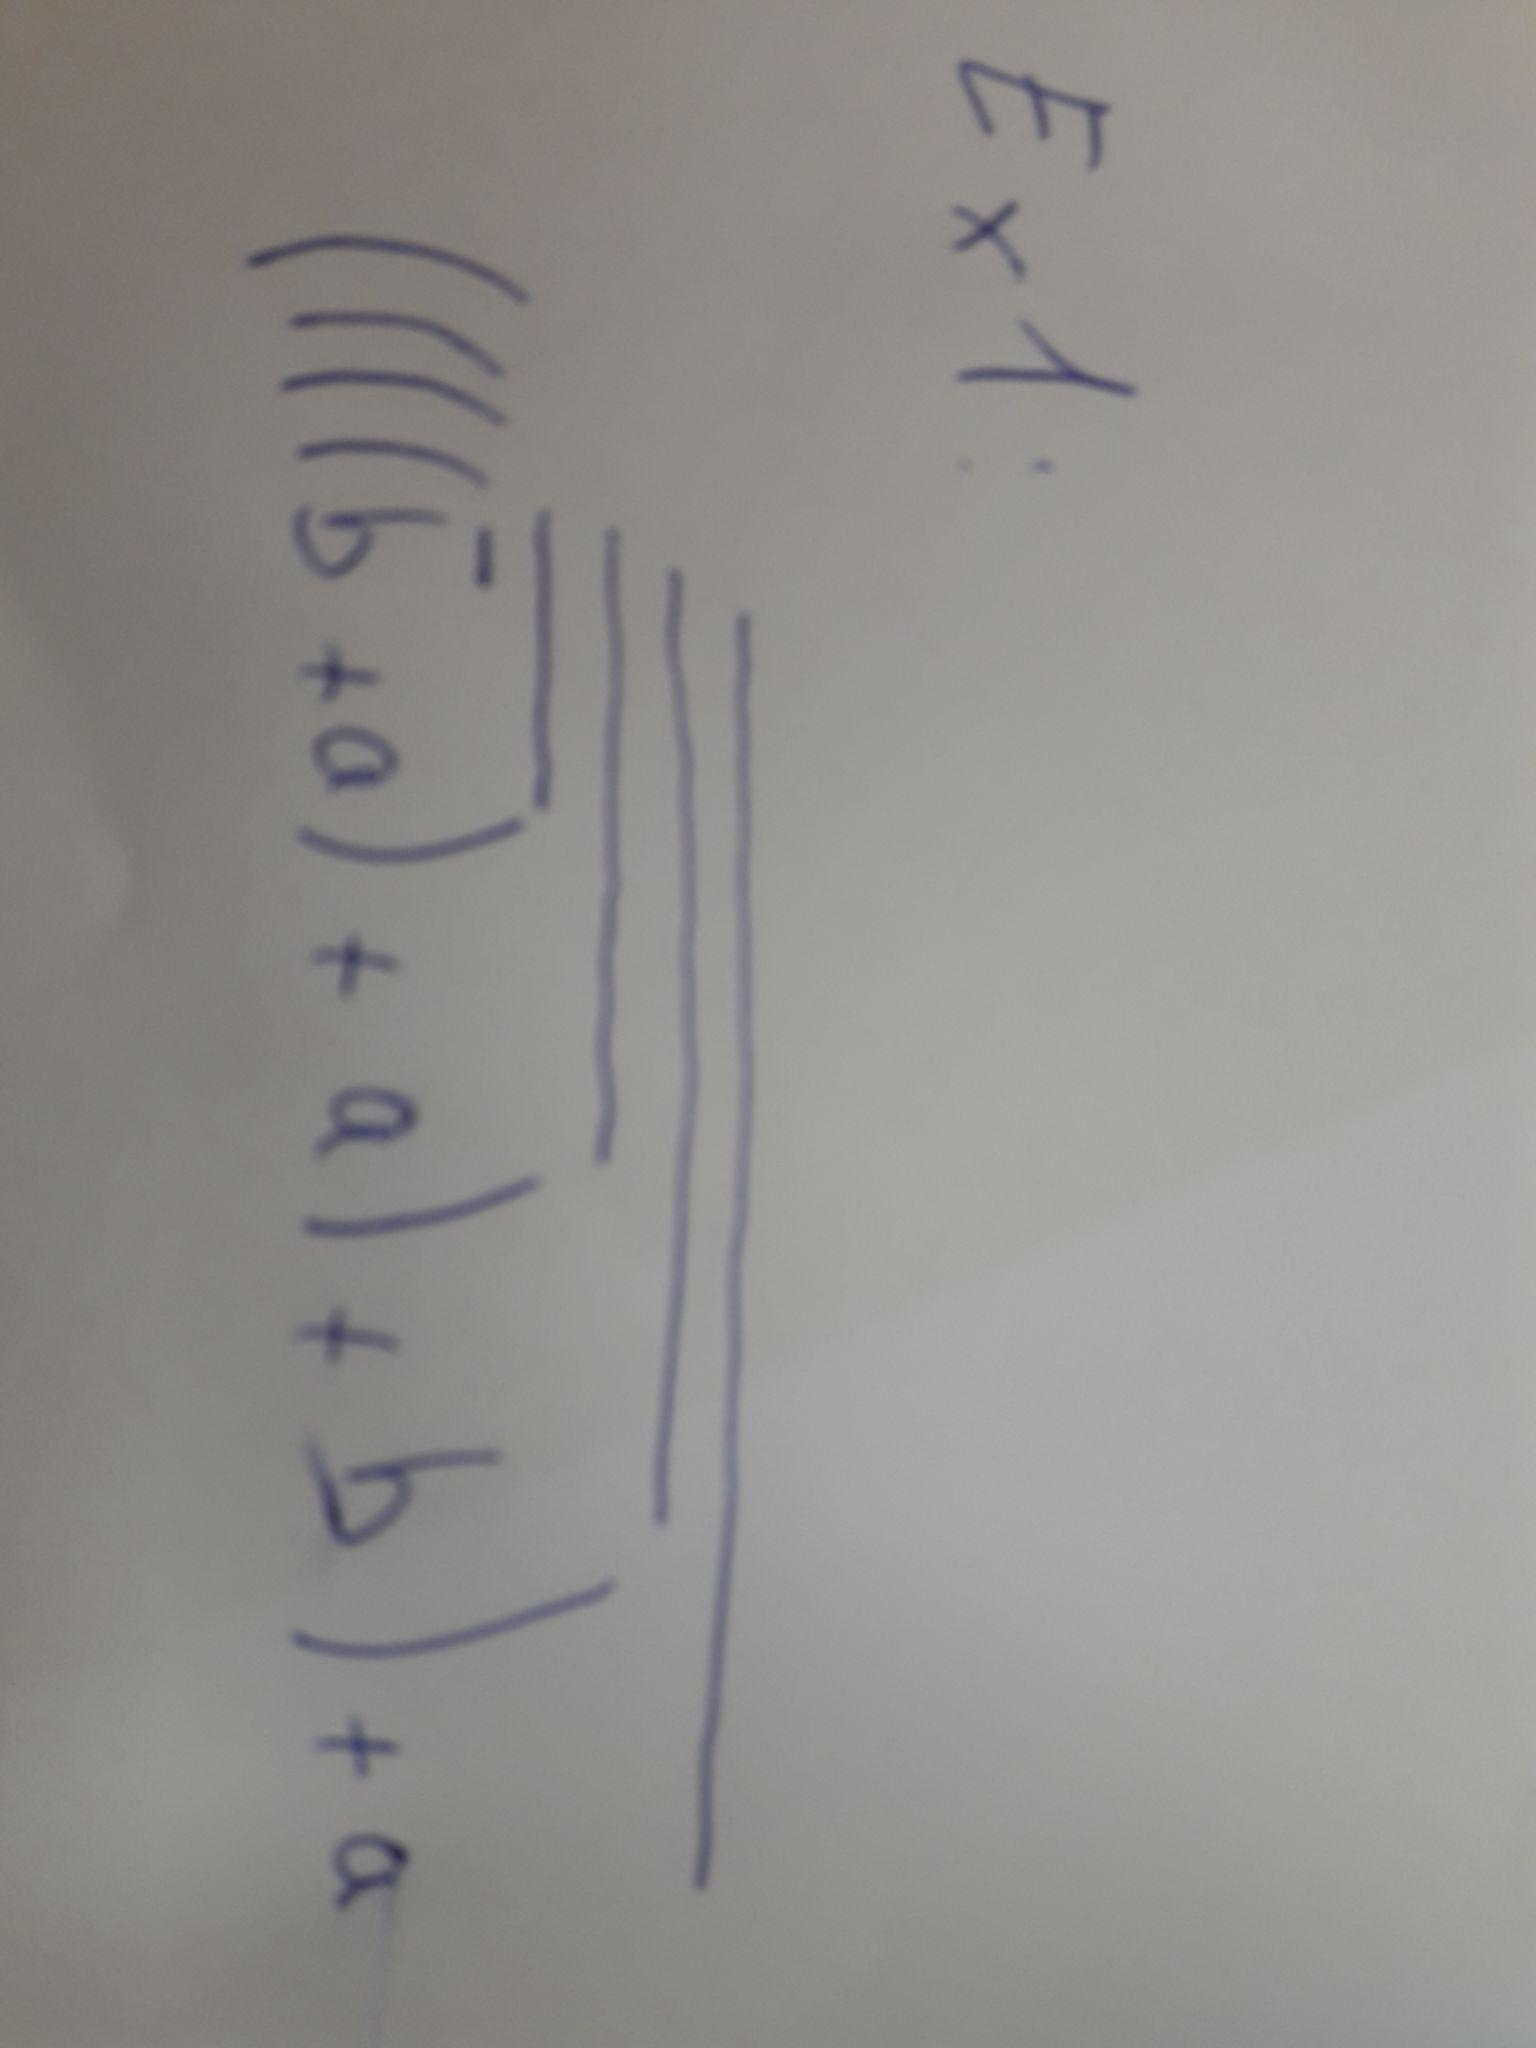 Ex 1:
((((b̅ + a) + a) + b) + a